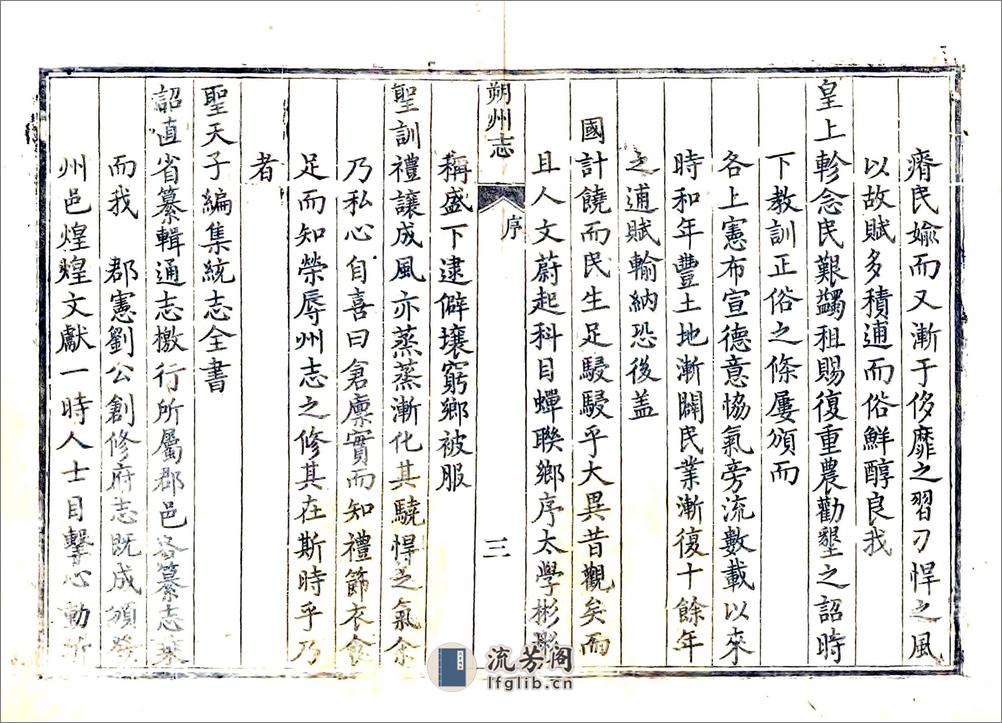 瘠民媮而又漸于侈靡之習刁悍之風
以故賦多積逋而俗鮮醇良我
皇上軫念民艱蠲租賜復重農勸墾之詔時
下教訓正俗之條屢頒而
各上憲布宣德意恊氣旁流數載以來
時和年豐土地漸闢民業漸復十餘年
之逋賦輸納恐後蓋
國計饒而民生足駸駸乎大異昔觀矣而
且人文蔚起科目蟬聯鄉序太學彬彬
朔州志
序
三
稱盛下逮僻壤窮鄉被服
聖訓禮讓成風亦蒸蒸漸化其驍悍之氣余
乃私心自喜曰倉廪實而知禮節衣食
足而知榮辱州志之修其在斯時乎乃
者
聖天子編集統志全書
詔直省纂輯通志檄行所屬郡邑各纂志乘
而我 郡憲劉公創修府志既成頒發
州邑煌煌文獻一時人士目擊心動
流芳阁
lfglib.cn